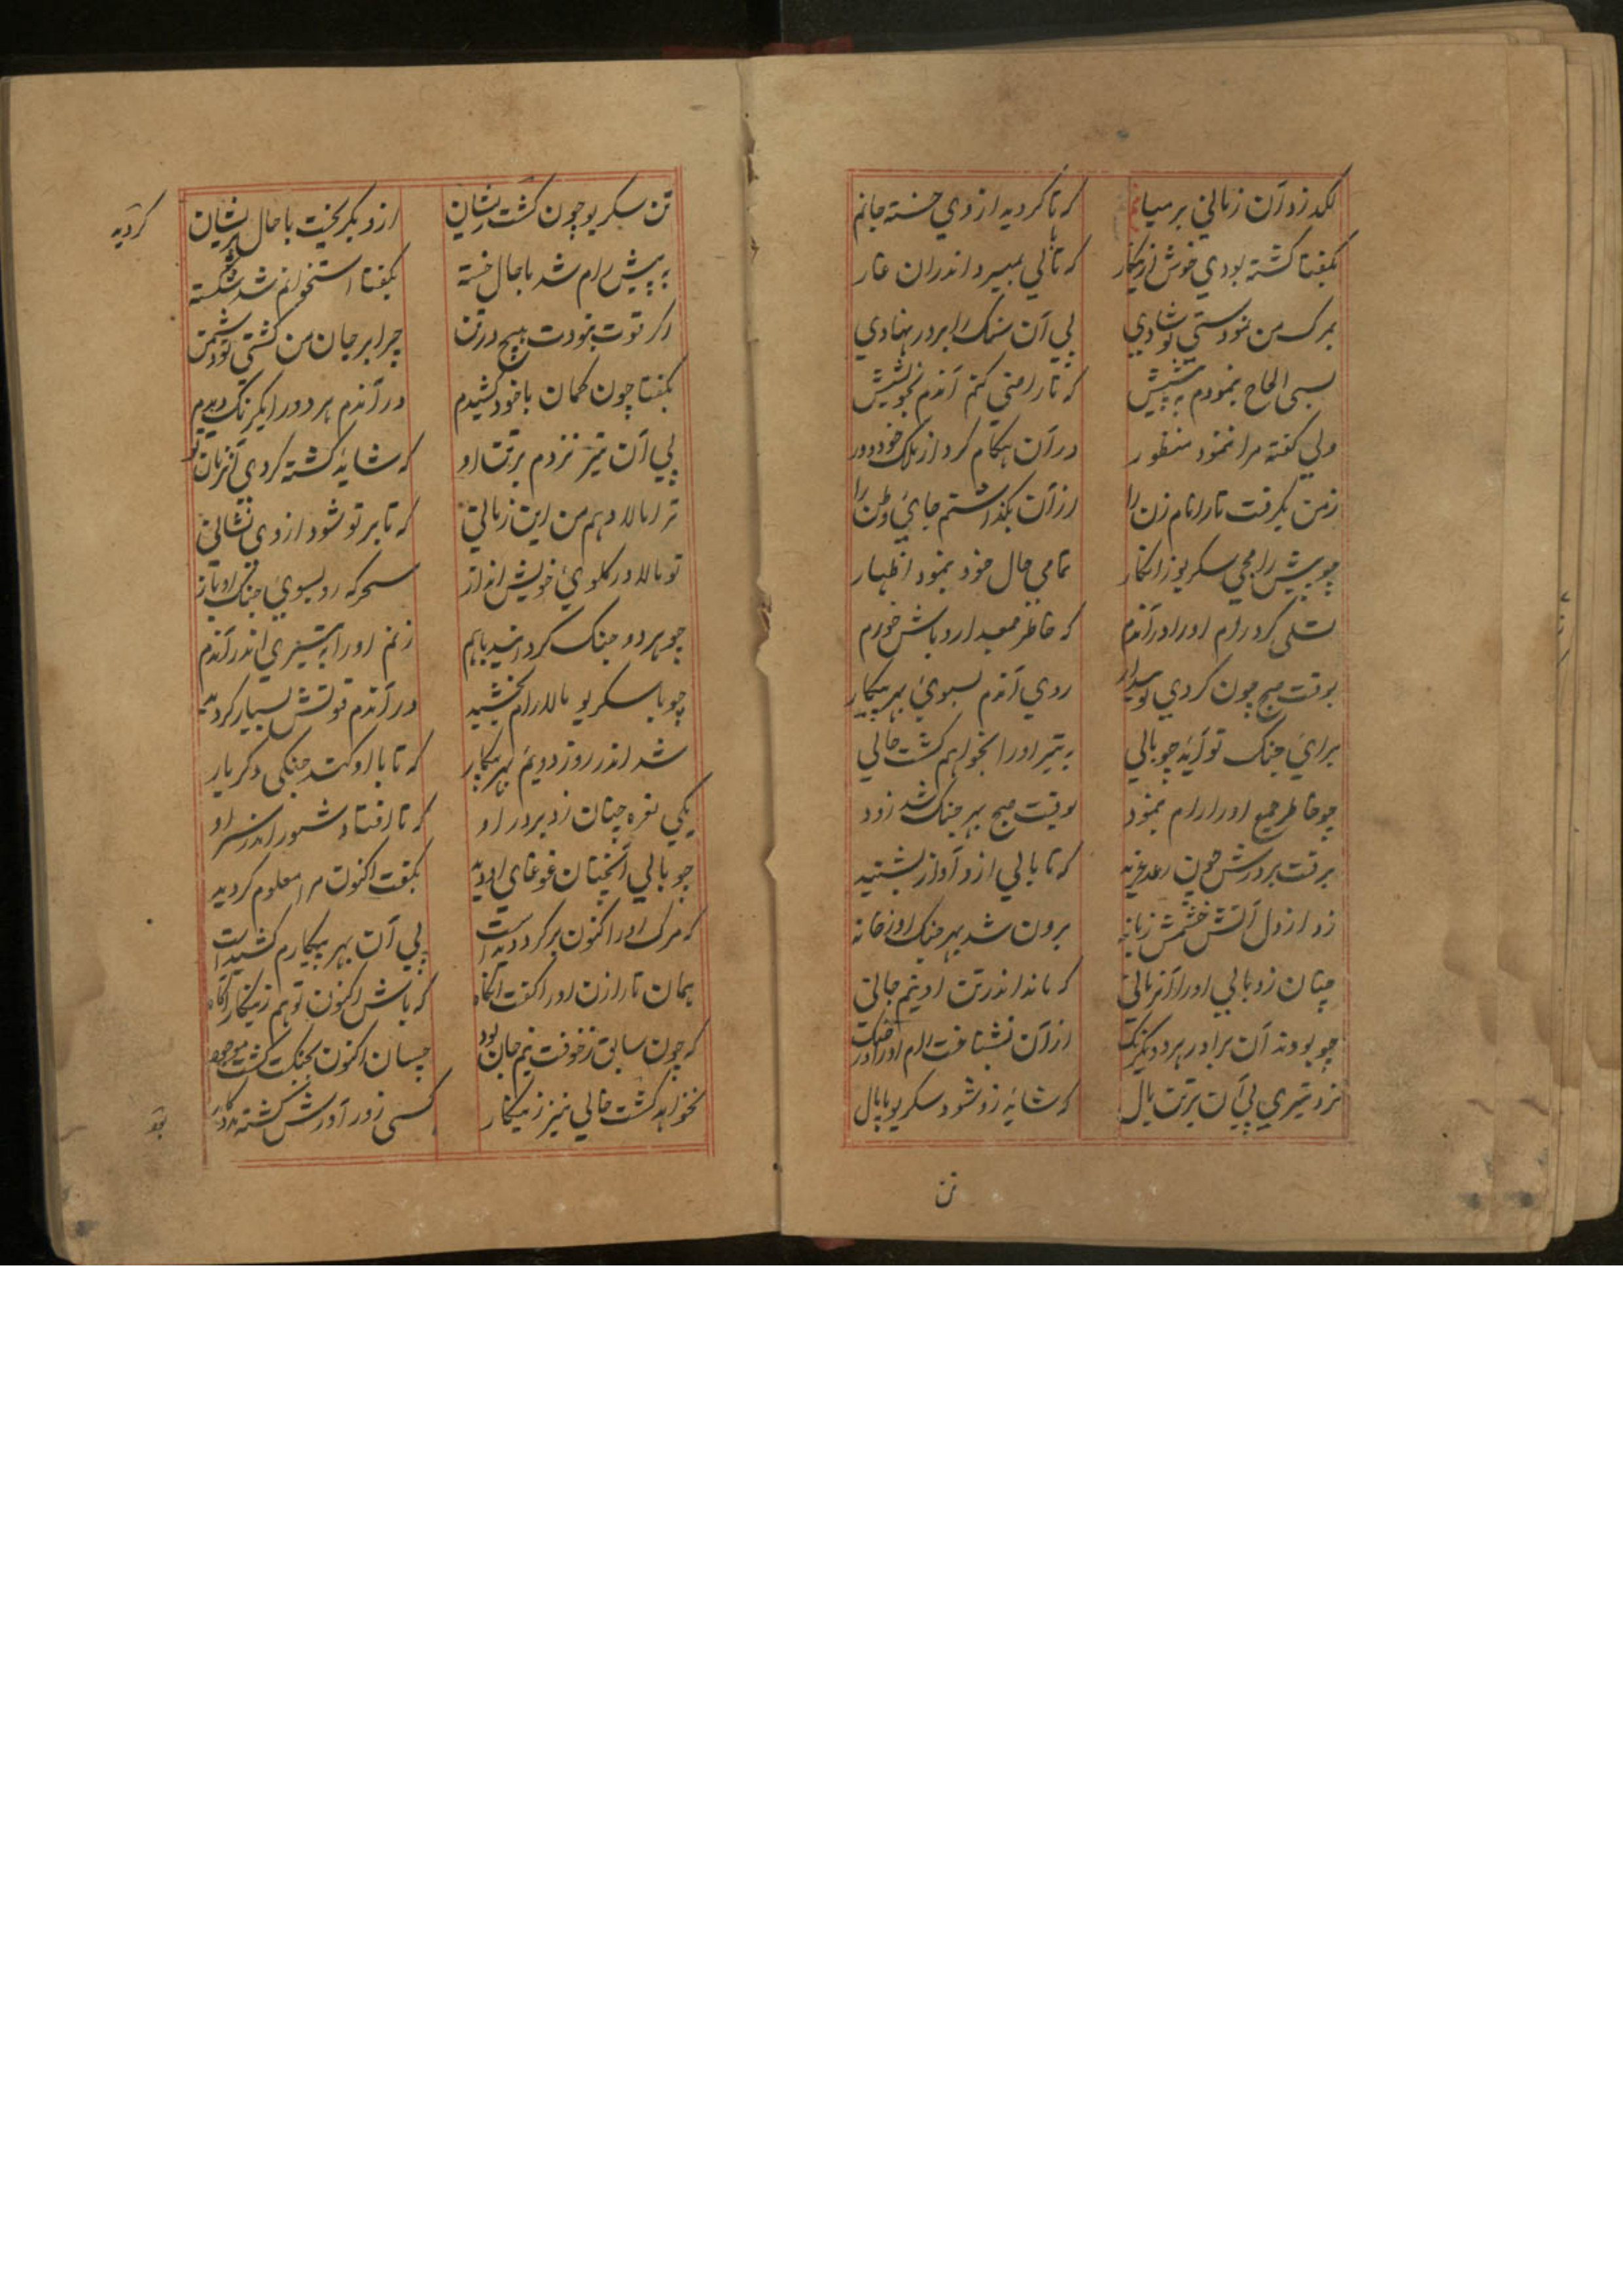 لکد زد آن زمانی بر میانم که تا کردید از وی خسته جانم
بگفتا گشته بودی خوش ازینکار که تالی بمیرد اندران غار
بمرگ من نمودستی تو شادی پی آن سنک را بر در نهادی
بسی الحاح بنمودم به پیشش که تا راضی کنم آندم بخویشش
ولی گفته مرا ننمود منظور در آن هنکام کرد از ملک خود دور
ز من بگرفت تارا نام زن را از آن بگذاشتم جای وطن را
چو پیش رامجی سکریو زانکار تمامی حال خود بنمود اظهار
تسلی کرد رام اورا در آندم که خاطر جمع دار و باش خورم
بوقت صبح چون کردی تو بیدار روی آندم بسوی بهر پیکار
برای جنک تو آید چو بالی به تیر اورا بخواهم کشت حالی
چو خاطر جمع اورا رام بنمود بوقت صبح بهر جنک شد زود
برفت بر درش چون رعد غرید که تا بالی ازو آواز بشنید
زد از دل آتش خشمش زبانه برون شد بهر جنک او ز خانه
چنان زد بالی اورا آنزمانی که ماند اندر تن او نیم جانی
چو بودند آن برادر هر دو یکرنک از آن نشناخت رام اورا در آن جنک
نزد تیری پی آن بر تن بال که شاید زو شود سکریو پامال
تن
تن سکریو چون گشت پریشان ازو بگریخت با حال پریشان
به پیش رام شد با حال خسته بگفتا استخوانم شد شکسته
اگر قوت نبودت هیچ در تن چرا بر جان من کشتی تو دشمن
بگفتا چون کمان با خود کشیدم در آندم هر دو را یکرنک دیدم
پی آن تیر نزدم بر تن او که شاید کشته کردی آنزمان تو
ترا مالا دهم من این زمانی که تا بر تو شود از وی نشانی
تو مالا در کلوی خویش انداز سحرکه رو بسوی جنک او باز
چو هر دو جنک کردانید باهم زنم اورا به تیری اندر آندم
چو با سکریو مالا رام بخشید در آندم قوتش بسیار کردید
شد اندر روز دویم بهر پیکار که تا با او کند جنکی دکر بار
یکی نعره چنان زد بر در او که تا افتاد شور اندر سر او
چو بالی آنچنان غوغای او دید بگفت اکنون مرا معلوم کردید
که مرک اورا کنون بر کرد دیده است پی آن بهر پیکارم کشیده است
همان تارا زن اورا گفت آنگاه که باش اکنون تو هم زینکار آگاه
که چون سابق ز خوفت نیم جان بود چسان اکنون بجنک گشت موجود
نخواهد کشت خالی نیز زینکار کسی زور آورش گشته مددکار
کردید